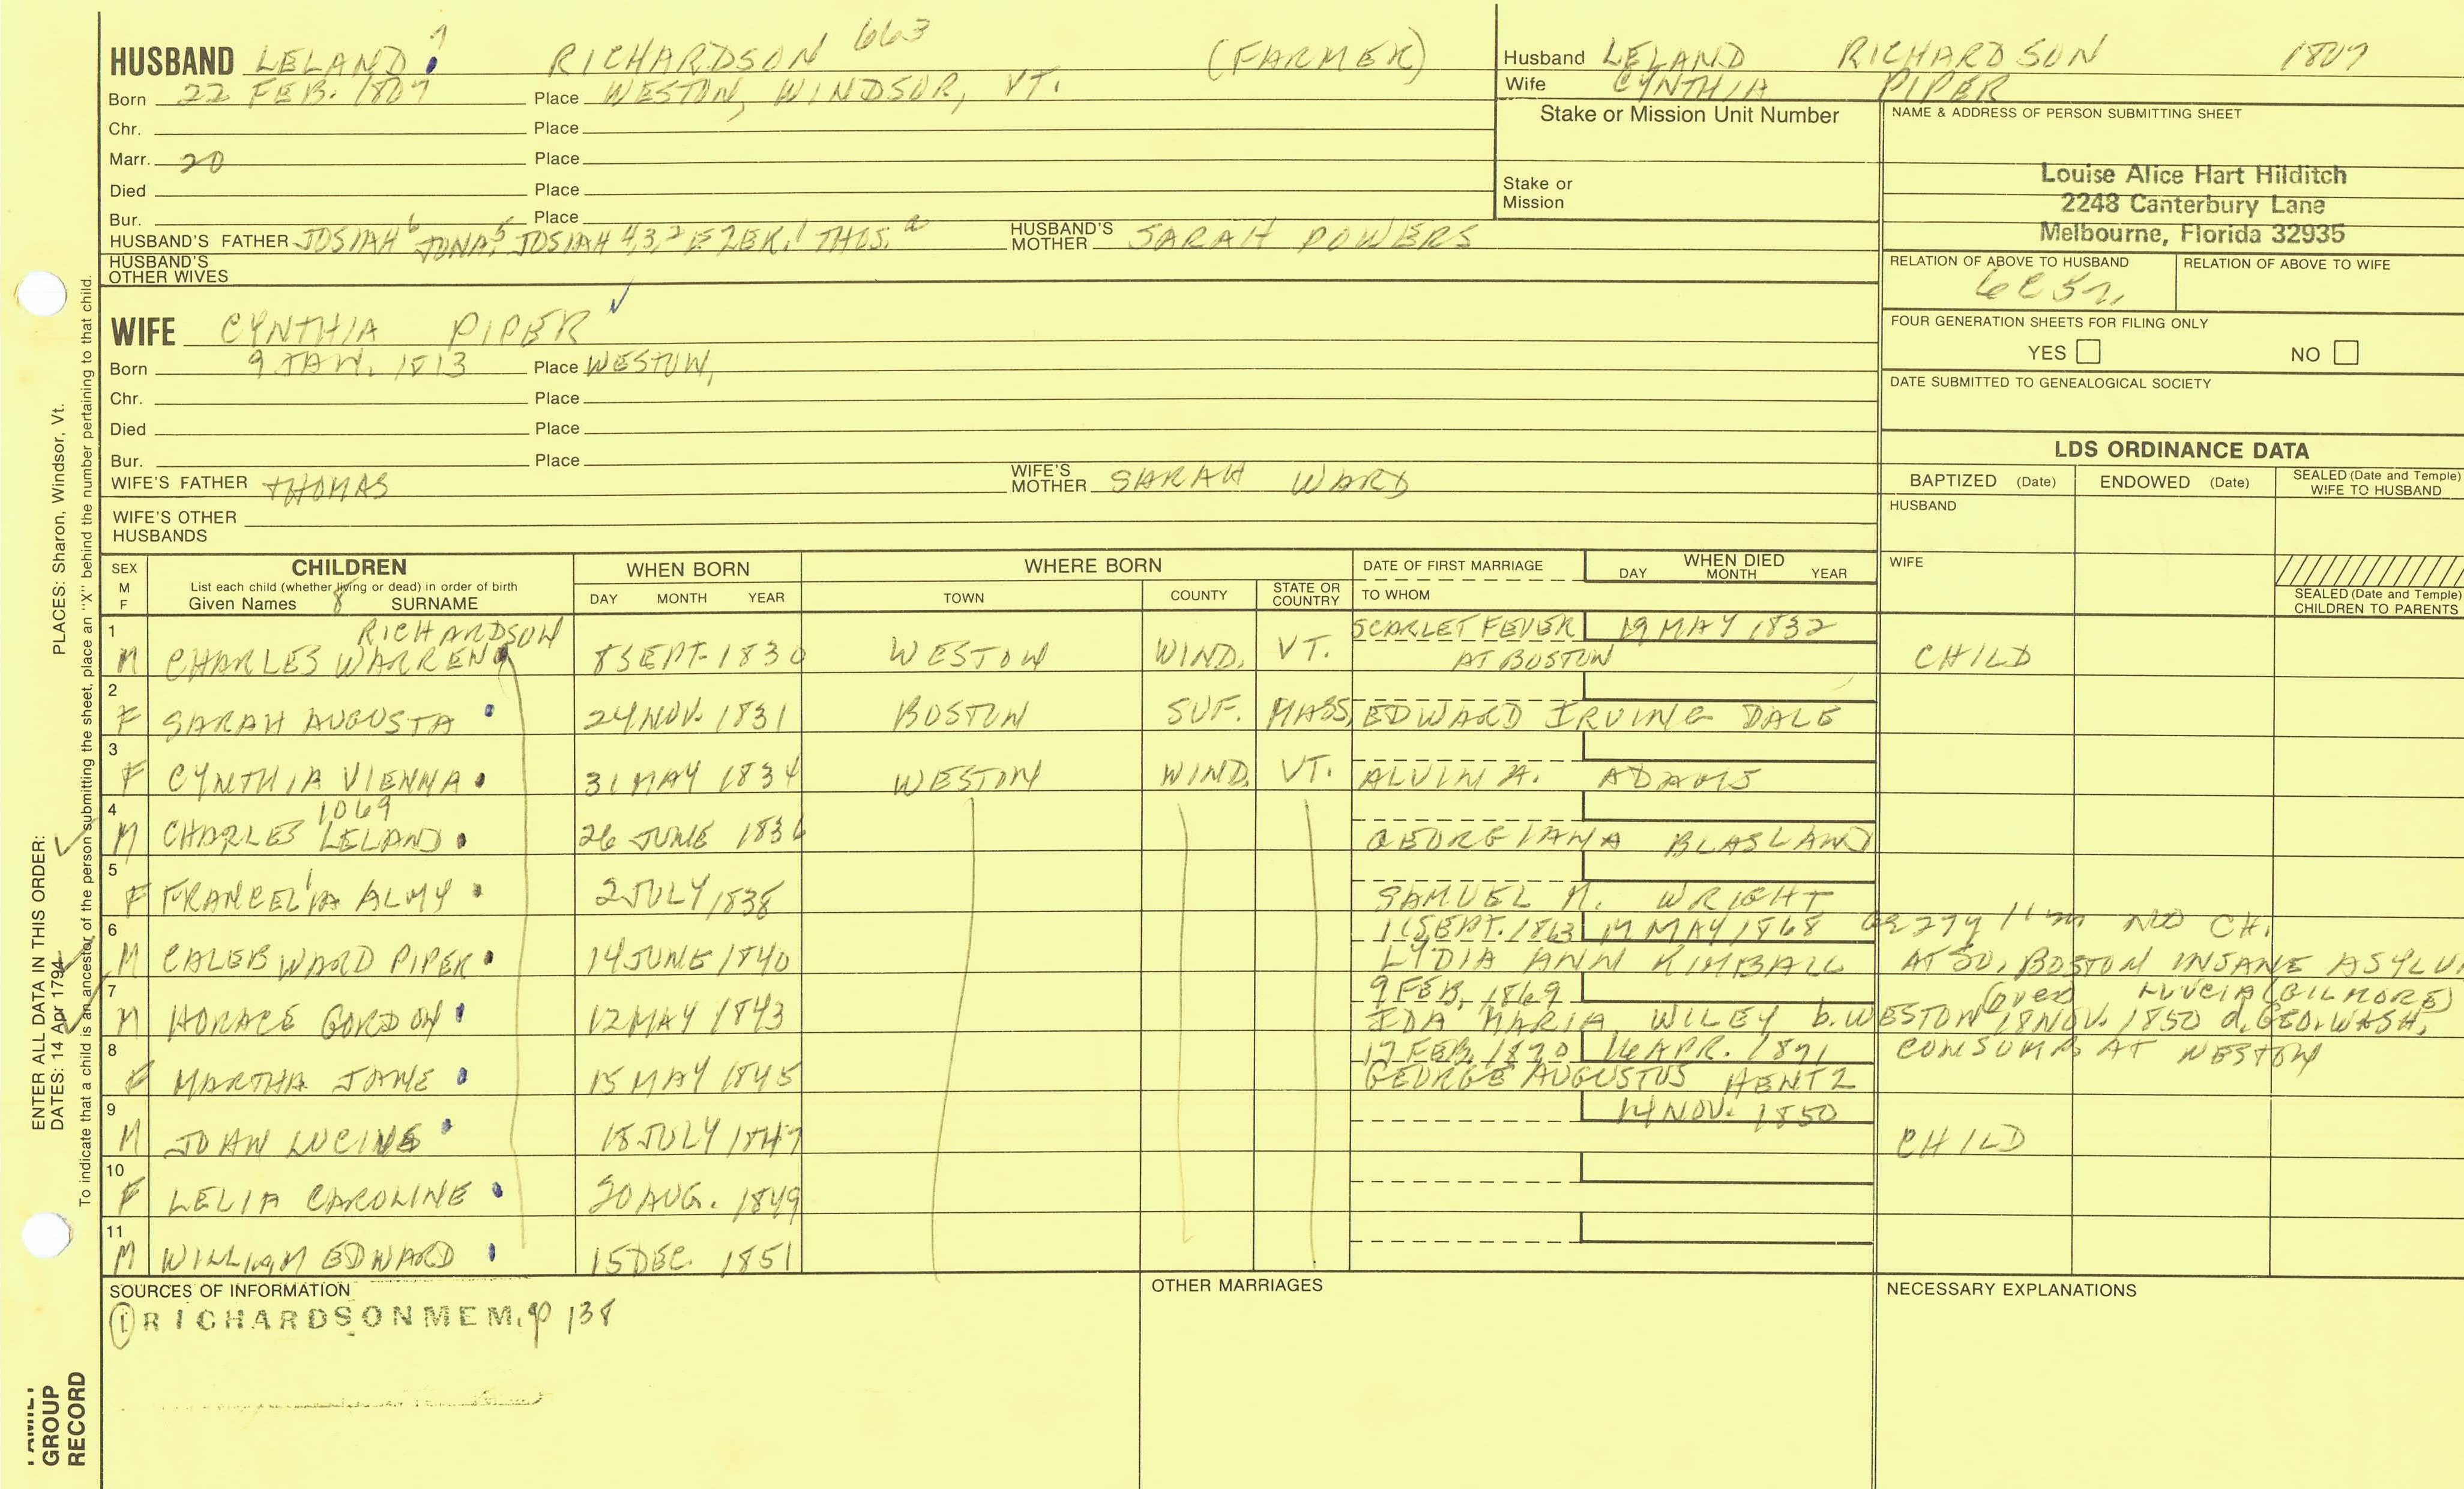 HUSBAND LELAND 7 RICHARDSON 663 (FARMER)
Born 22 FEB. 1807 Place WESTON, WINDSOR, VT.
Chr. Place
Marr. 20 Place
Died Place
Bur. Place
HUSBAND'S FATHER JOSIAH 6 JONA, 5 JOSIAH 4,3,2 EZEK. 1 THOS. a HUSBAND'S MOTHER SARAH POWERS
HUSBAND'S OTHER WIVES
WIFE CYNTHIA PIPER ✓
Born 9 JAN. 1813 Place WESTON,
Chr. Place
Died Place
Bur. Place
WIFE'S FATHER THOMAS WIFE'S MOTHER SARAH WARD
WIFE'S OTHER HUSBANDS
Husband LELAND RICHARDSON 1807
Wife CYNTHIA PIPER
Stake or Mission Unit Number
Stake or Mission
NAME & ADDRESS OF PERSON SUBMITTING SHEET
Louise Alice Hart Hilditch
2248 Canterbury Lane
Melbourne, Florida 32935
RELATION OF ABOVE TO HUSBAND RELATION OF ABOVE TO WIFE
FOUR GENERATION SHEETS FOR FILING ONLY
YES NO
DATE SUBMITTED TO GENEALOGICAL SOCIETY
LDS ORDINANCE DATA
BAPTIZED (Date) ENDOWED (Date) SEALED (Date and Temple) WIFE TO HUSBAND
HUSBAND
WIFE
SEALED (Date and Temple) CHILDREN TO PARENTS
SEX M F
CHILDREN
List each child (whether living or dead) in order of birth
Given Names 8 SURNAME
WHEN BORN
DAY MONTH YEAR
WHERE BORN
TOWN COUNTY STATE OR COUNTRY
DATE OF FIRST MARRIAGE
TO WHOM
WHEN DIED
DAY MONTH YEAR
1 RICHARDSON SCARLET FEVER 19 MAY 1832
M CHARLES WARREN 8 SEPT. 1830 WESTON WIND. VT. AT BOSTON CHILD
2
F SARAH AUGUSTA 24 NOV. 1831 BOSTON SUF. MASS, EDWARD IRVING DALE
3
F CYNTHIA VIENNA 31 MAY 1834 WESTON WIND. VT. ALVIN A. ADAMS
4 1069
M CHARLES LELAND 26 JUNE 1836 GEORGIANA BLASLAND
5
F FRANCELIA ALMY 2 JULY 1838 SAMUEL M. WRIGHT
6 1 SEPT. 1863 MAY 1868 NO CH.
M CALEB WARD PIPER 14 JUNE 1840 LYDIA ANN KIMBALL AT SO, BOSTON INSANE ASYLU
7 9 FEB. 1869 (OVER) LUVCIA (GILMORE)
M HORACE GORDON 12 MAY 1843 IDA MARIA WILEY b. WESTON 18 NOV. 1850 d. GEO. WASH.
8 17 FEB. 1870 16 APR. 1871 CONSUMP. AT WESTON
F MARTHA JANE 15 MAY 1845 GEORGE AUGUSTUS HENTZ
9 14 NOV. 1850
M JOAN LUCINE 18 JULY 1847 CHILD
10
F LELIA CAROLINE 20 AUG. 1849
11
M WILLIAM EDWARD 15 DEC. 1851
SOURCES OF INFORMATION
① RICHARDSON MEM. p 138
OTHER MARRIAGES
NECESSARY EXPLANATIONS
ENTER ALL DATA IN THIS ORDER:
DATES: 14 Apr 1794 PLACES: Sharon, Windsor, Vt.
To indicate that a child is an ancestor of the person submitting the sheet, place an "X" behind the number pertaining to that child.
FAMILY
GROUP
RECORD